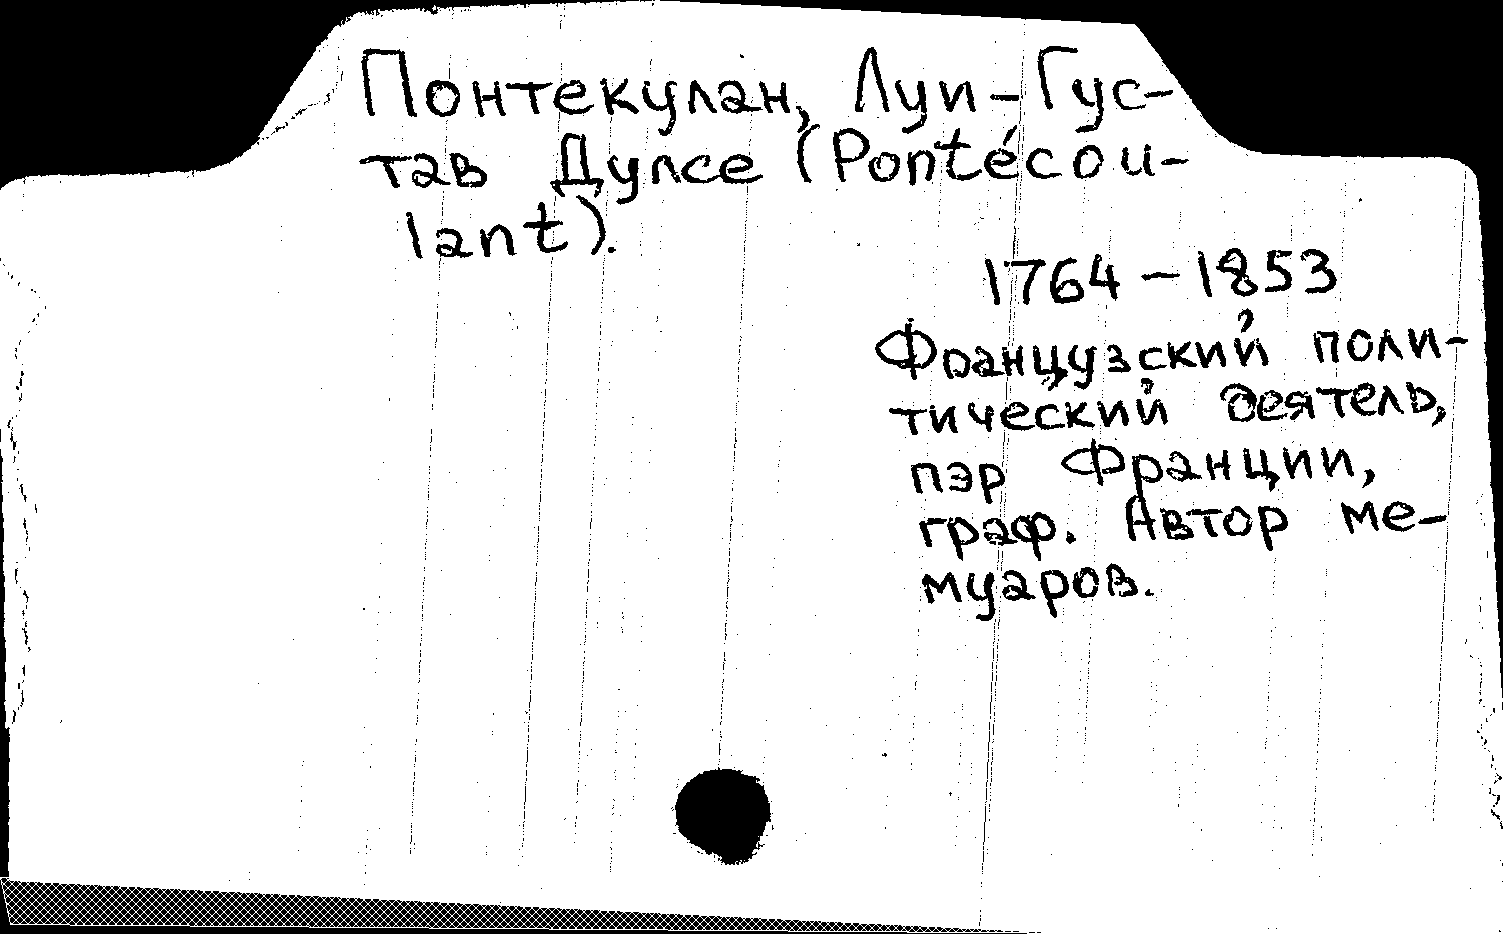 Понтекулан, Луи-Гус-
тав Дулсе (Pontécou-
lant).
1764 – 1853
Французский поли-
тический деятель,
пэр Франции,
граф. Автор ме-
муаров.